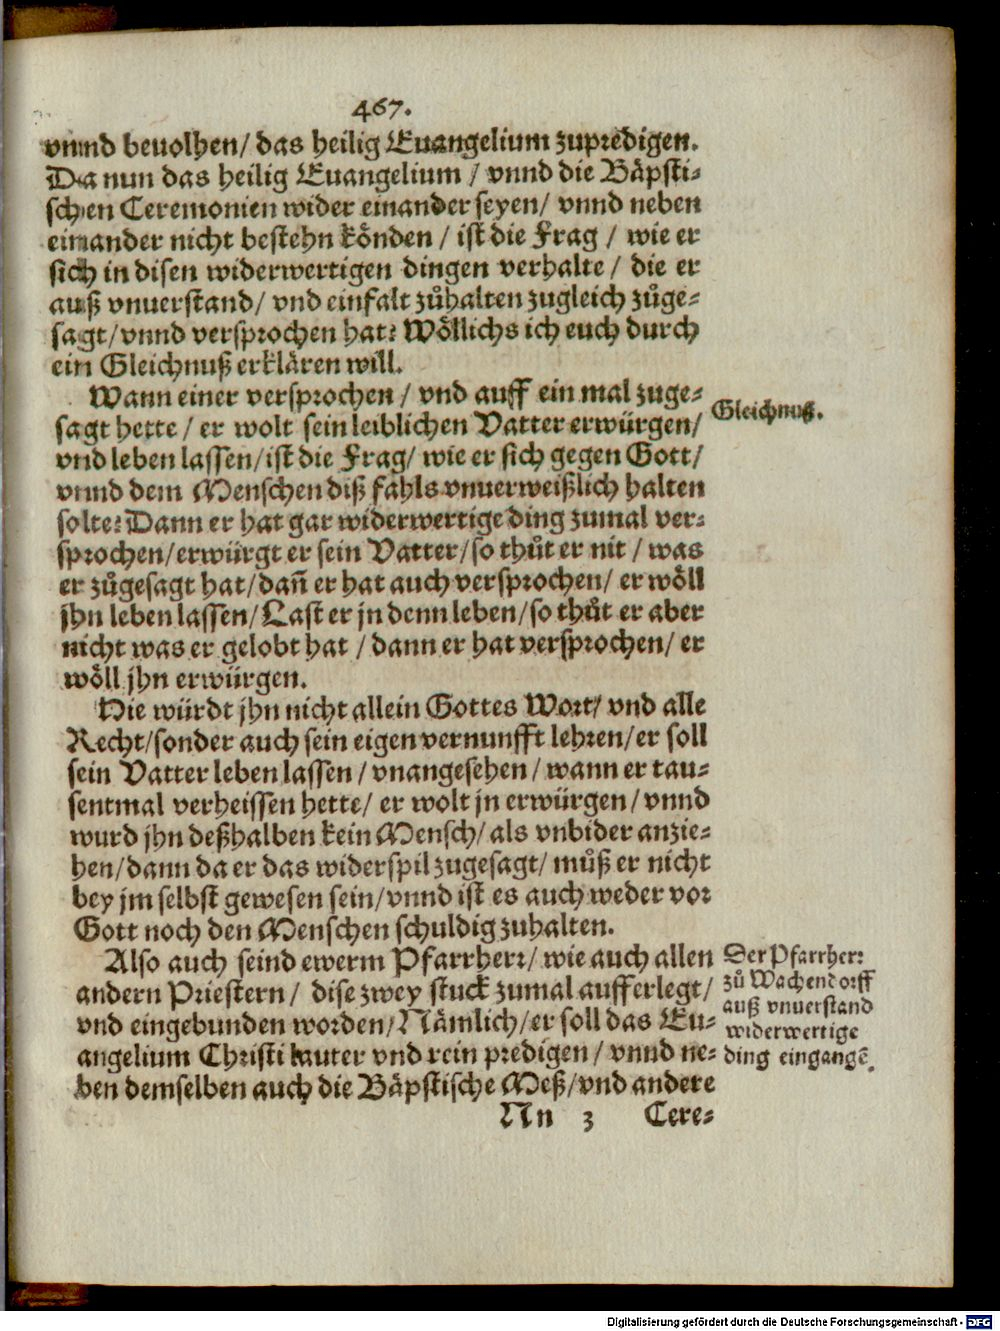 467.
vnnd beuolhen/ das heilig Euangelium zupredigen.
Da nun das heilig Euangelium / vnnd die Bäpsti-
schen Ceremonien wider einander seyen/ vnnd neben
einander nicht bestehn könden / ist die Frag / wie er
sich in disen widerwertigen dingen verhalte / die er
auß vnuerstand/ vnd einfalt zůhalten zugleich zůge-
sagt/ vnnd versprochen hat? Wöllichs ich euch durch
ein Gleichnuß erklären will.
Wann einer versprochen / vnd auff ein mal zuge-
sagt hette / er wolt sein leiblichen Vatter erwürgen/
vnd leben lassen/ ist die Frag/ wie er sich gegen Gott/
vnnd dem Menschen diß fahls vnuerweißlich halten
solte? Dann er hat gar widerwertige ding zumal ver-
sprochen/ erwürgt er sein Vatter/ so thůt er nit / was
er zůgesagt hat/ dañ er hat auch versprochen/ er wöll
jhn leben lassen/ Last er jn denn leben/ so thůt er aber
nicht was er gelobt hat / dann er hat versprochen/ er
wöll jhn erwürgen.
Gleichnuß.
Hie würdt jhn nicht allein Gottes Wort/ vnd alle
Recht/ sonder auch sein eigen vernunfft lehren/ er soll
sein Vatter leben lassen / vnangesehen / wann er tau-
sentmal verheissen hette/ er wolt jn erwürgen / vnnd
wurd jhn deßhalben kein Mensch/ als vnbider anzie-
hen/ dann da er das widerspil zugesagt/ můß er nicht
bey jm selbst gewesen sein/ vnnd ist es auch weder vor
Gott noch den Menschen schuldig zuhalten.
Also auch seind ewerm Pfarrherr/ wie auch allen
andern Priestern / dise zwey stuck zumal aufferlegt/
vnd eingebunden worden/ Nämlich/ er soll das Eu-
angelium Christi lauter vnd rein predigen / vnnd ne-
ben demselben auch die Bäpstische Meß/ vnd andere
Der Pfarrherr
zů Wachendorff
auß vnuerstand
widerwertige
ding eingangẽ.
Nn 3 Cere-
Digitalisierung gefördert durch die Deutsche Forschungsgemeinschaft - DFG